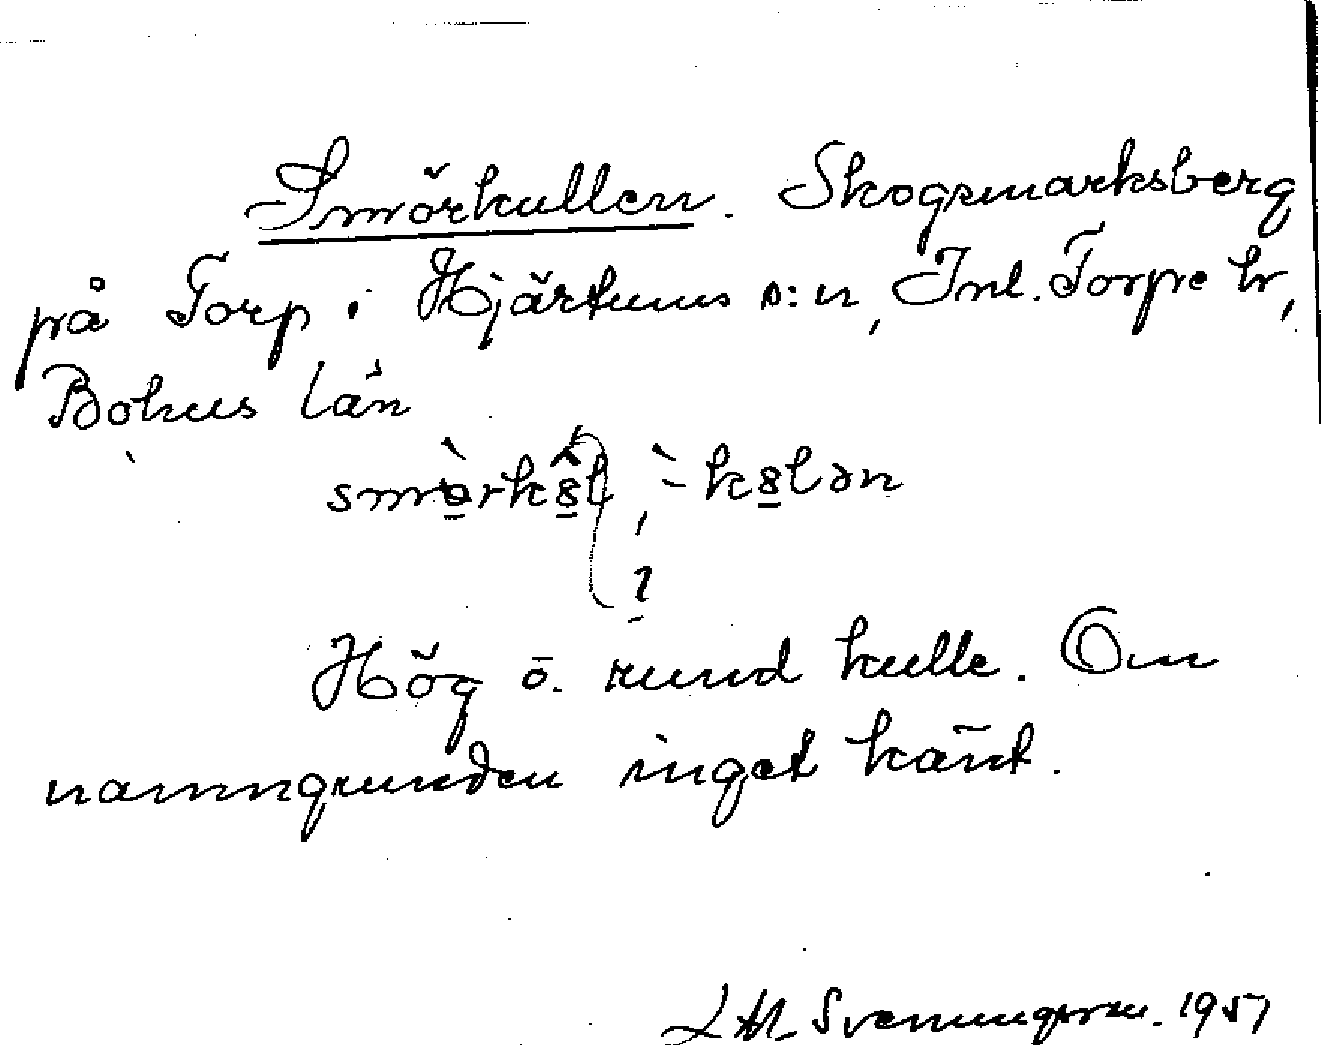 Smörkullen. Skogsmarksberg
på Torp i Hjärtums s:n, Inl. Torpe hr,
Bohus län
smòrk8l, -k8lən
?
Hög o. rund kulle. Om
namngrunden inget känt.
LM Svenungsson. 1957